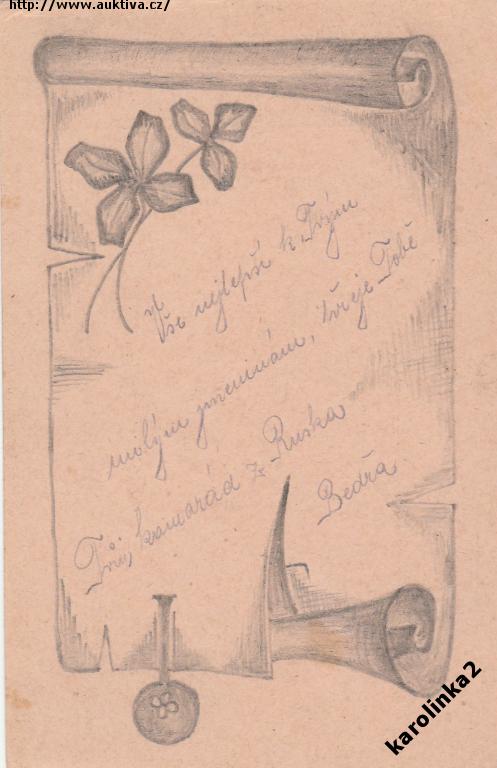 http://www.auktiva.cz/
Vše nejlepší k Tvým
milým jmeninám, přeje Tobě
Tvůj kamarád z Ruska
Bedřa
karolinka2